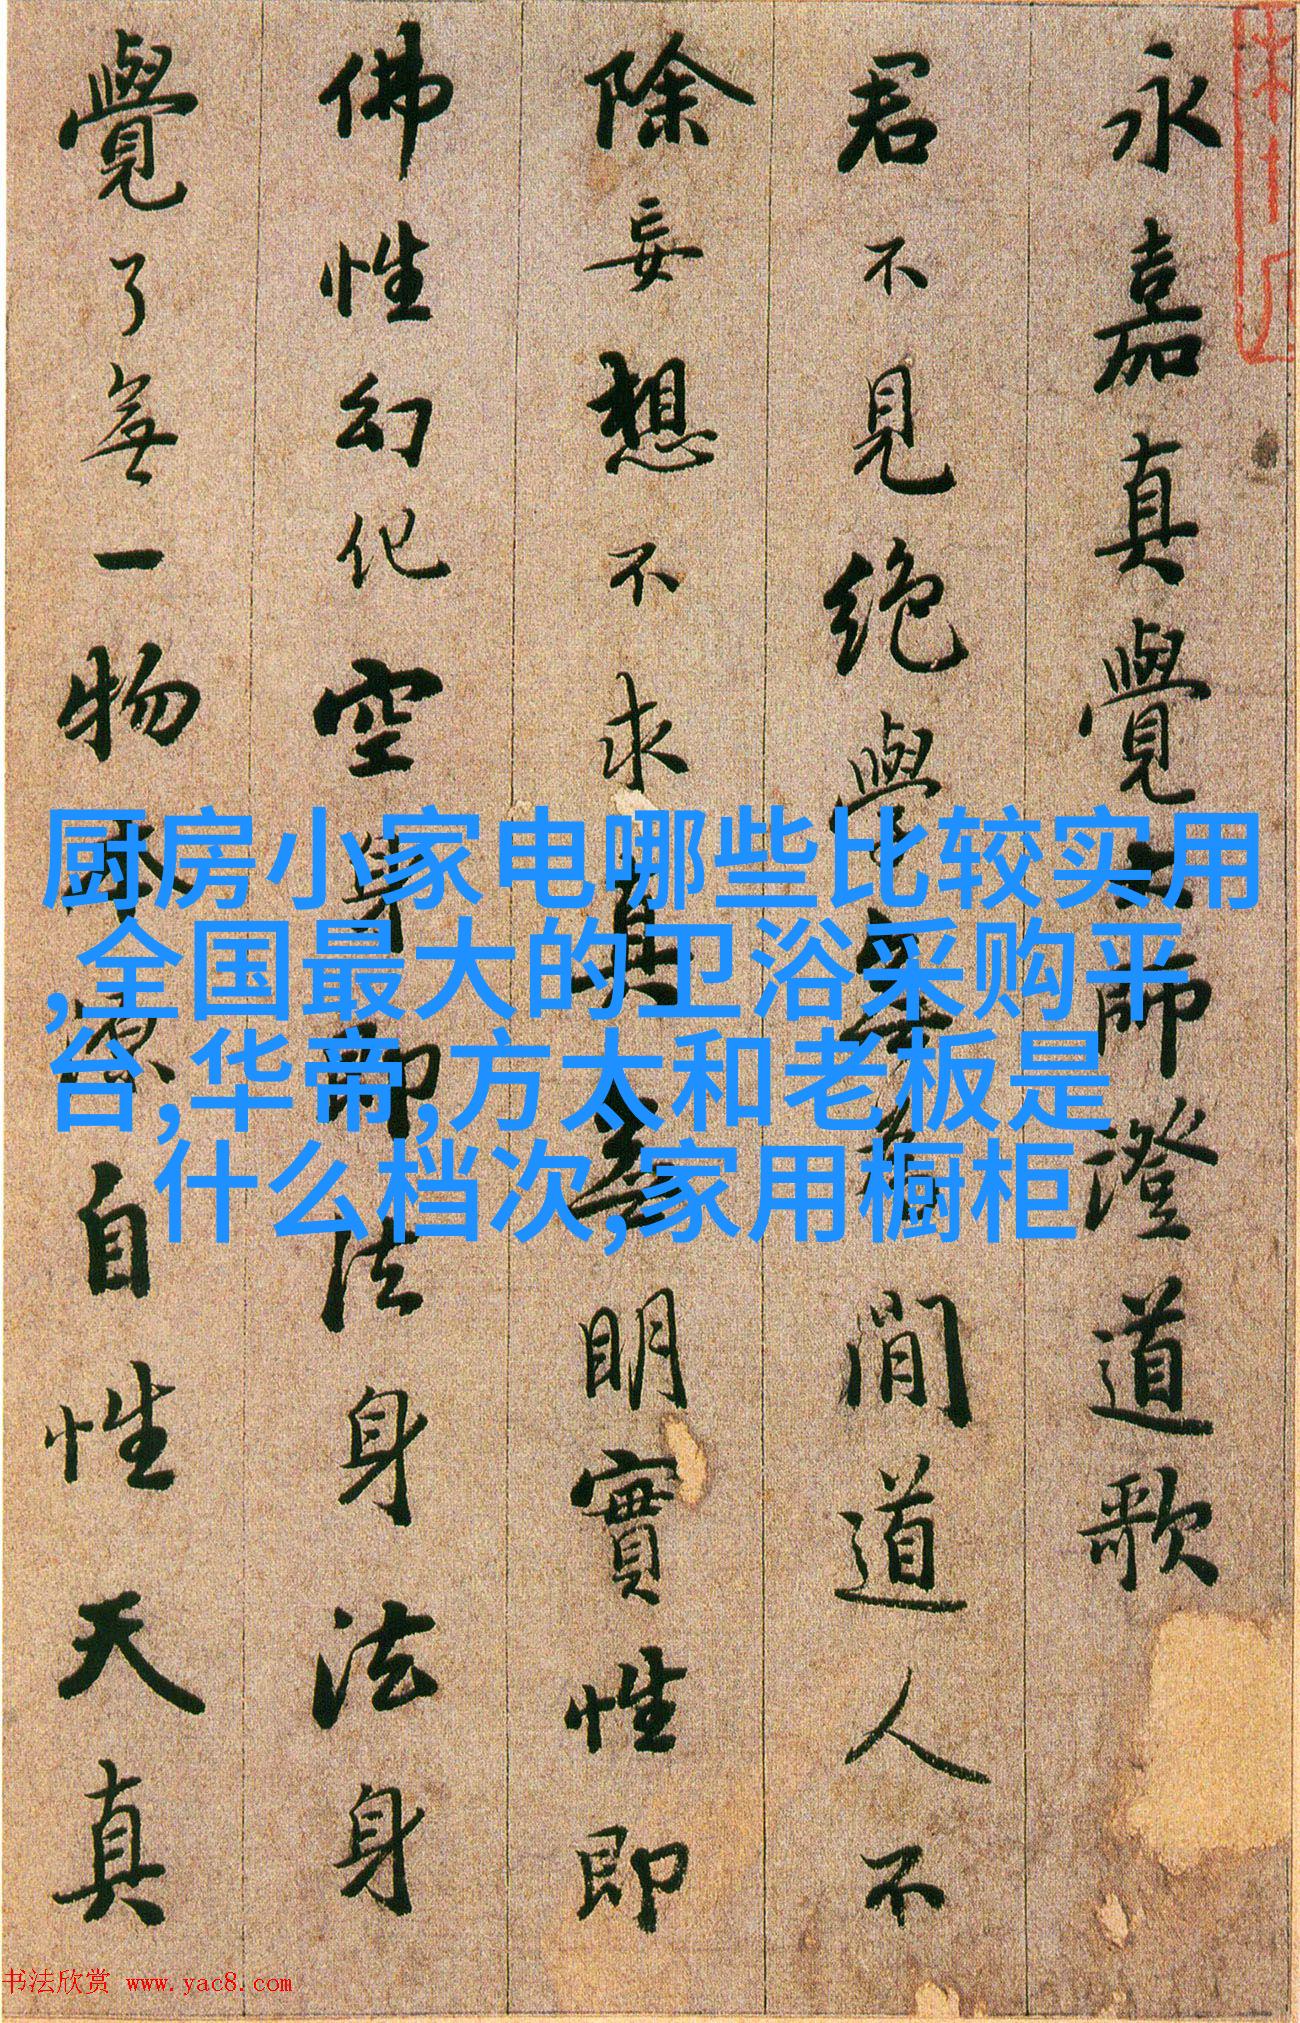 永嘉真覺大師澄道歌
君不見絶學無為閒道人不
除妄想不求真無明實性即
佛性幻化空身即法身法身
覺了無一物本源自性天真
厨房小家电哪些比较实用
,全国最大的卫浴采购平
台,华帝,方太和老板是
什么档次,家用橱柜
书法欣赏 www.yac8.com